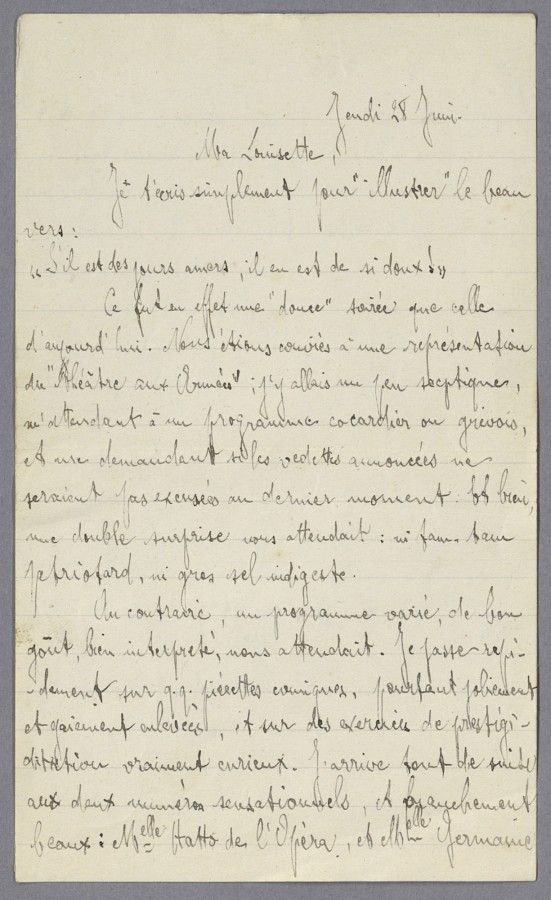 Jeudi 28 Juin.
Ma Louisette,
Je t'écris simplement pour "illustrer" le beau
vers :
"S'il est des jours amers, il en est de si doux !"
Ce fut en effet une "douce" soirée que celle
d'aujourd'hui. Nous étions conviés à une représentation
du "Théâtre aux Armées" ; j'y allais un peu sceptique,
m'attendant à un programme cocardier ou grivois,
et me demandant si les vedettes annoncées ne
seraient pas excusées au dernier moment. Eh bien,
une double surprise nous attendait : ni fam-tam
patriotard, ni gros sel indigeste.
Au contraire, un programme varié, de bon
goût, bien interpreté, nous attendait. Je passe rapi-
-dement sur q.q. piécettes comiques, pourtant joliment
et gaiement enlevées, et sur des exercices de prestigi-
ditation vraiment curieux. J'arrive tout de suite
aux deux numéros sensationnels, et franchement
beaux : Melle Hatto de l'Opéra, et Melle Germaine